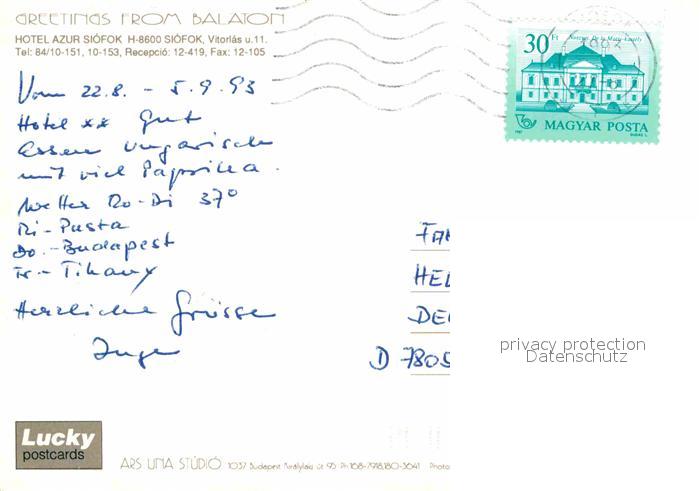 GREETINGS FROM BALATON
HOTEL AZUR SIÓFOK H-8600 SIÓFOK, Vitorlás u.11.
Tel: 84/10-151, 10-153, Recepció: 12-419, Fax: 12-105
Vom 22.8. - 5.9.93
Hotel xx Gut
Essen Ungarisch
mit viel Paprika.
Wetter Mo-Di 37°
Mi-Pusta
Do.-Budapest
Fr-Tihany
Herzliche Grüsse
Inge
30 Ft
MAGYAR POSTA
1987
FAM
HEL
DEI
D 7805
privacy protection
Datenschutz
Lucky
postcards
ARS UNA STÚDIÓ 1037 Budapest Királylaki út 95 Ph: 168-7918, 180-3641 Photo